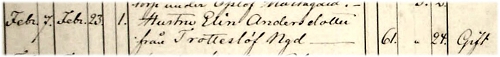 Febr. 7. Febr. 23. 1. Hustru Elin Andersdotter
från Trotteslöf Ngd — 61. „ 24. Gift